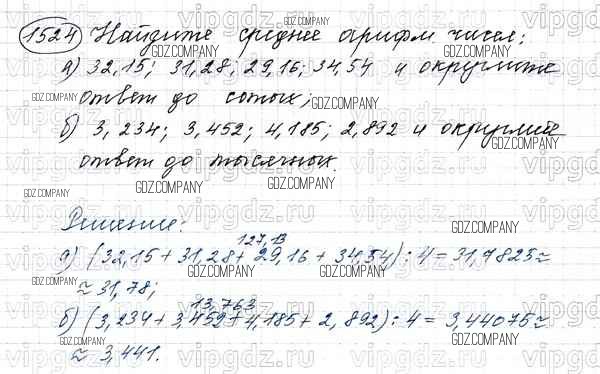 1524 Найдите среднее арифм. чисел:
а) 32,15; 31,28; 29,16; 34,54 и округлите
ответ до сотых;
б) 3,234; 3,452; 4,185; 2,892 и округлите
ответ до тысячных.
Решение:
127,13
а) (32,15 + 31,28 + 29,16 + 34,54) : 4 = 31,7825 ≈
≈ 31,78;
13,763
б) (3,234 + 3,452 + 4,185 + 2,892) : 4 = 3,44075 ≈
≈ 3,441.